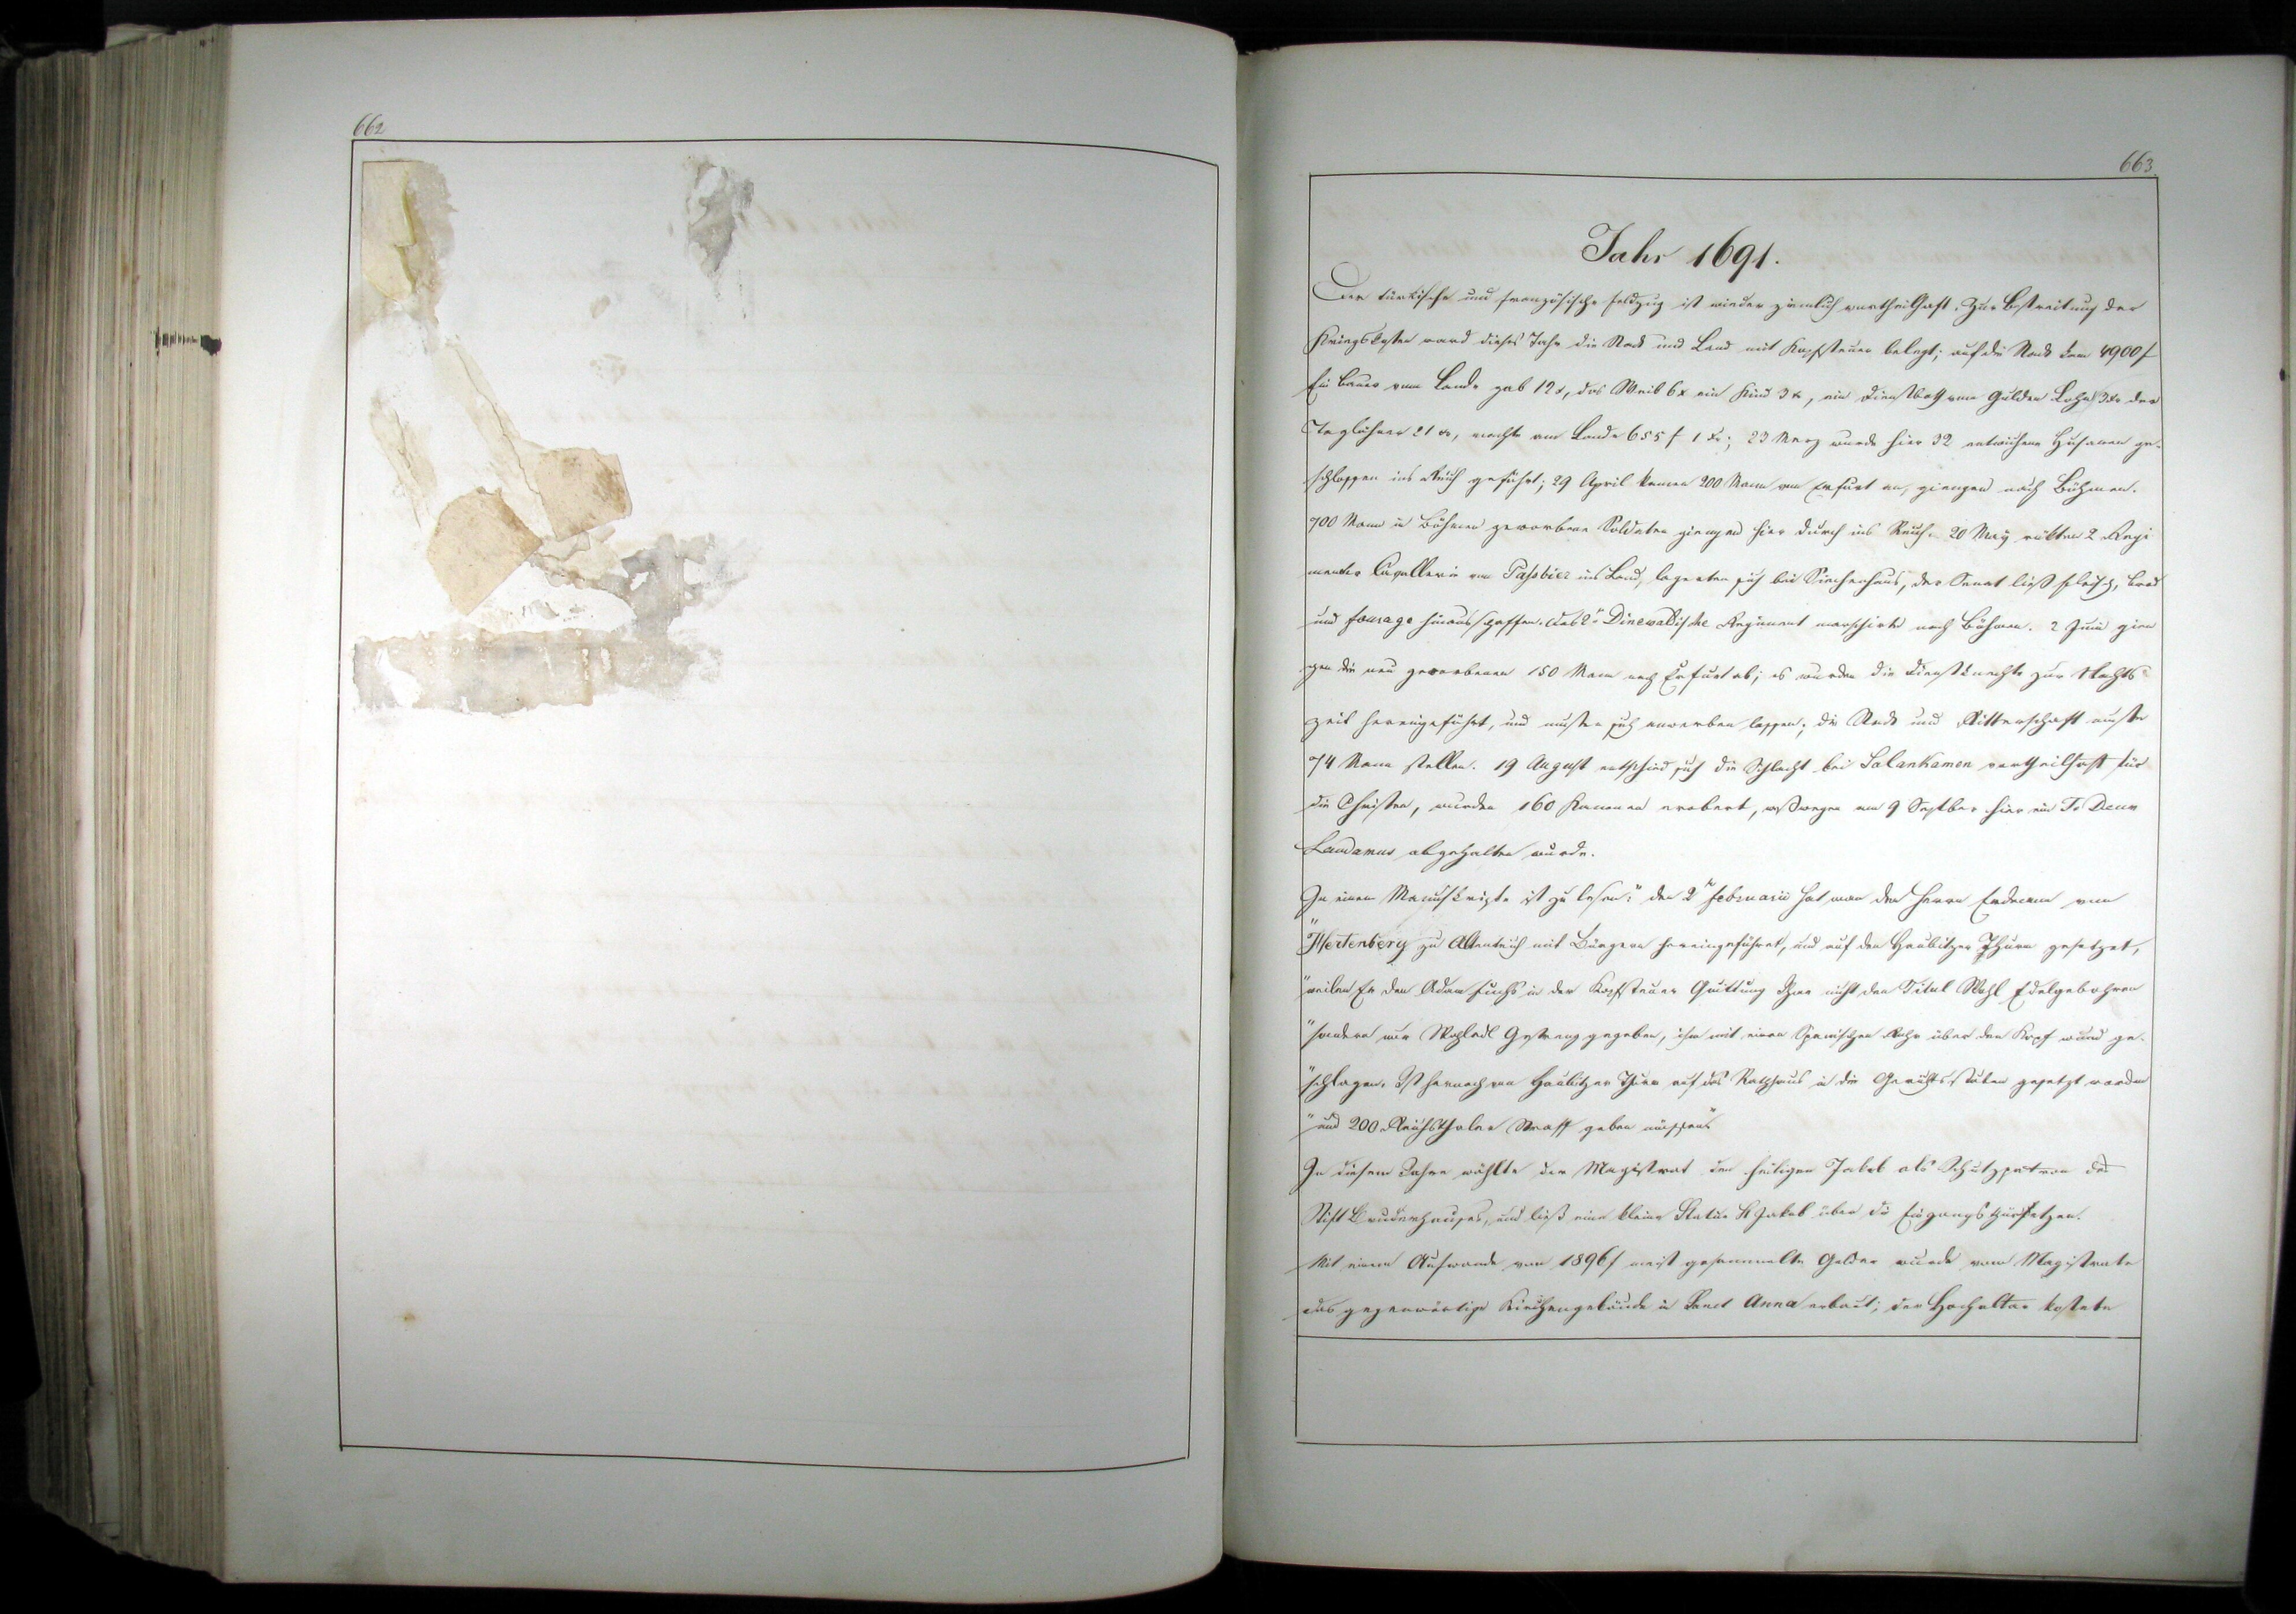 662
663.
Jahr 1691.
Der türkische und französische Feldzug ist wieder ziemlich vortheilhaft. Zur Bestreitung der
Kriegskosten ward dieses Jahr die Stadt und Land mit Kopfsteuer belegt; auf die Stadt kam 4900 f
Ein Bauer vom Lande gab 12 x, das Weib 6 x ein Kind 3 x, ein Dienstboth vom Gulden Lohn 3 x der
Taglöhner 21 x, machte vom Lande 655 f 1 x; 23 Merz wurde hier 32 entwichene Husaren ge-
schlossen ins Reich geführt; 29 April kamen 200 Mann von Erfurt an, giengen nach Böhmen.
700 Mann in Böhmen geworbene Soldaten giengen hier durch ins Reich. 20 May rükten 2 Regi
menter Cavallerie von ins Land, lagerten sich bei Siechenhaus, der Senat ließ Fleisch, Brod
und Fourage hinausschaffen. Das Regiment marschirte nach Böhmen. 2 Juni gien
gen die neu geworbenen 150 Mann nach Erfurt ab; es wurden die Dienstknechte zur Nachts-
zeit hereingeführt, und mußten sich anwerben lassen; die Stadt und Ritterschaft mußte
74 Mann stellen. 19 August entschied sich die Schlacht bei Salankamen vortheilhaft für
die Christen, wurden 160 Kanonen erobert, weßwegen am 9 Septber hier ein Te Deum
Laudamus abgehalten wurde.
In einem Manuskripte ist zu lesen: "den 2ten Februarii hat man den Herrn von
"Hertenberg zu Altenteich mit Bürgern hereingeführet, und auf den Haubitzer Thurn gesetzet,
"weilen Er den Adam Fuchs in der Kopfsteuer Quittung Ihme nicht den Titul Wohl Edelgebohren
"sondern nur Wohledl Gestreng gegeben, ihm mit einem Spanischen Rohr über den Kopf wund ge-
"schlagen. Ist hernach von Haubitzer Thurn auf das Rathhaus in die Gerichtsstuben gesetzt worden
"und 200 Reichsthaler Straff geben müssen"
In diesem Jahre wählte der Magistrat den heiligen Jakob als Schutzpatron des
Stift Bruderhauses, und ließ eine kleine Statue St Jakob über die Eingangsthür setzen.
Mit einem Aufwande von 1896 f meist gesammelte Gelder wurde vom Magistrate
das gegenwärtige Kirchengebäude in Sanct Anna erbaut; der Hochaltar kostete